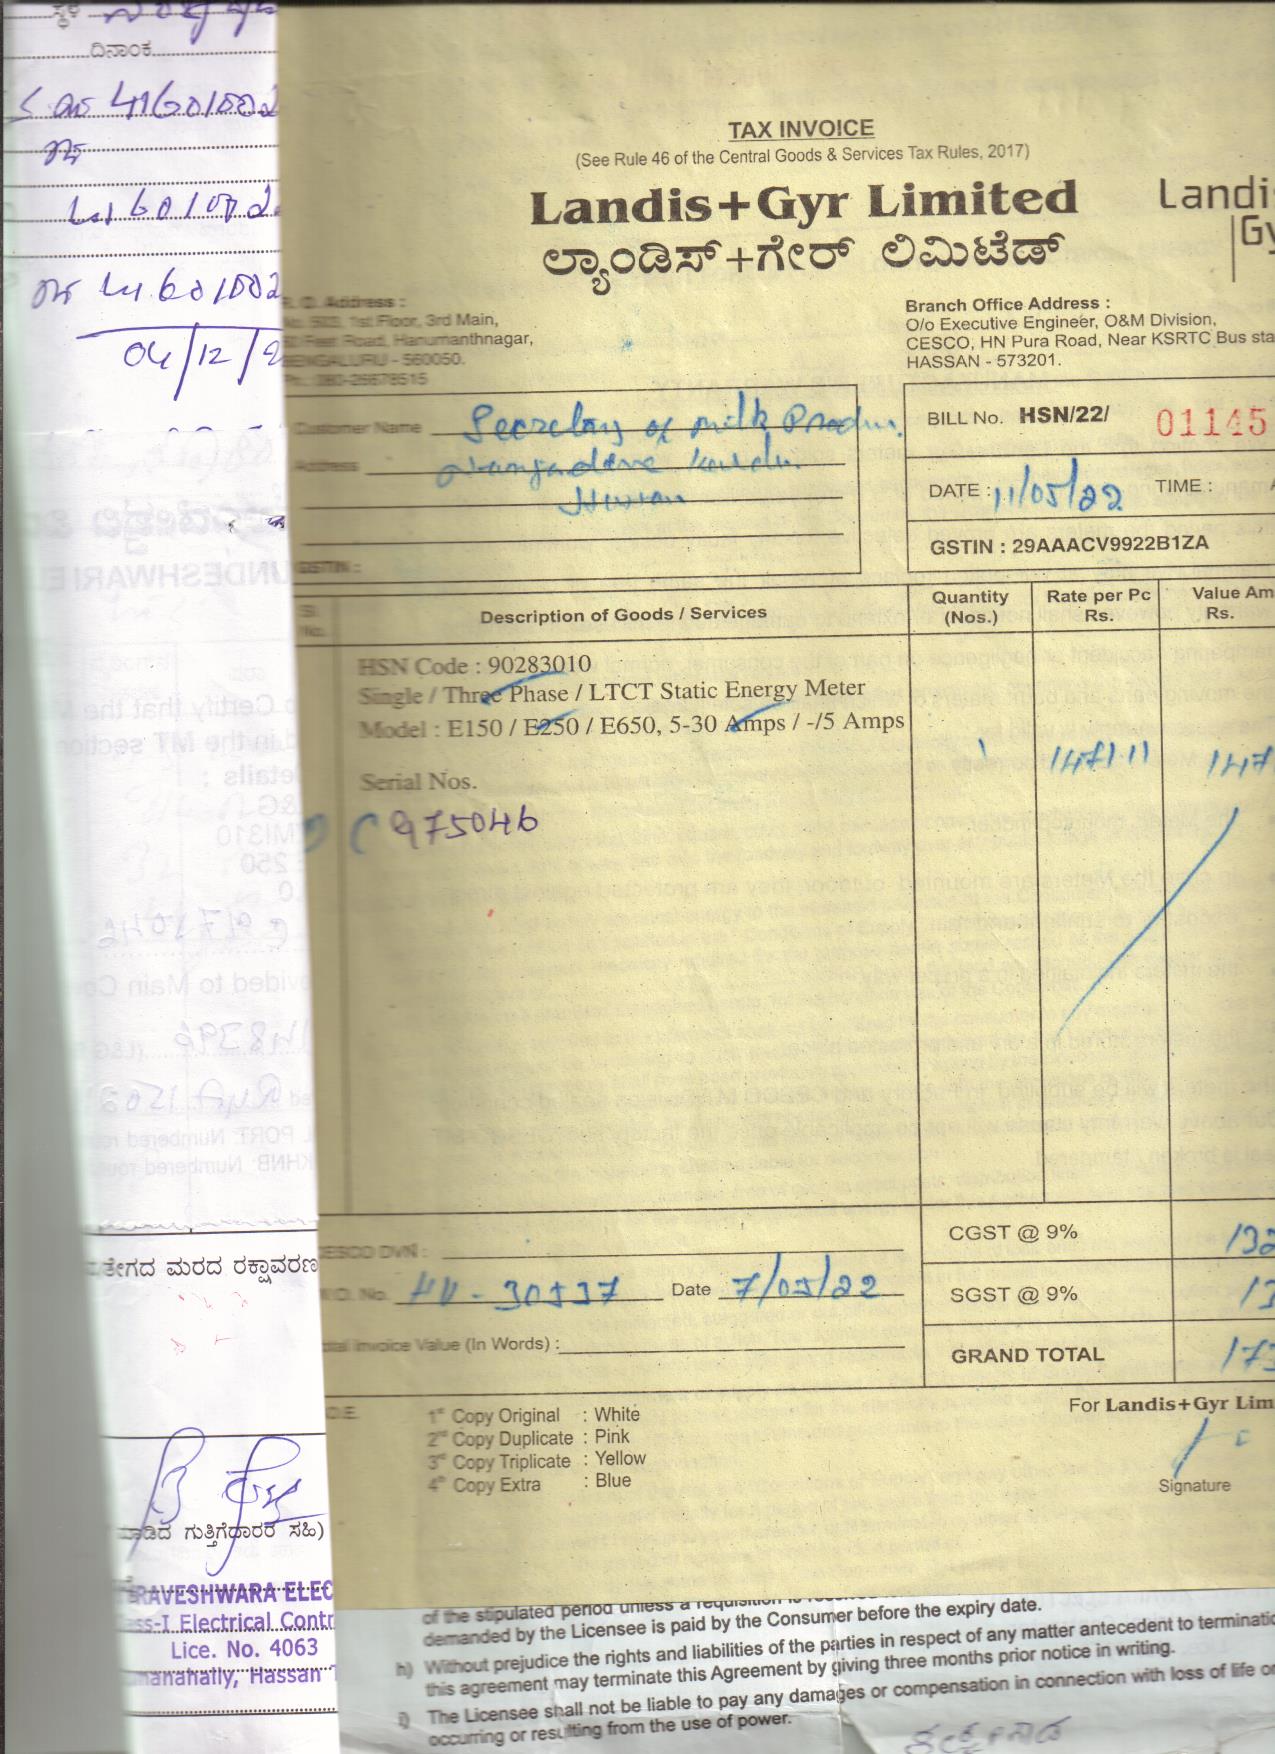 ಸ್ಥಳ
ದಿನಾಂಕ
41601002
04/12/2
TAX INVOICE
(See Rule 46 of the Central Goods & Services Tax Rules, 2017)
Landis+Gyr Limited
Landi
Gy
ಲ್ಯಾಂಡಿಸ್+ಗೇರ್ ಲಿಮಿಟೆಡ್
Address :
1st Floor, 3rd Main,
Feet Road, Hanumanthnagar,
BENGALURU - 560050.
Ph.: 080-26678515
Branch Office Address :
O/o Executive Engineer, O&M Division,
CESCO, HN Pura Road, Near KSRTC Bus sta
HASSAN - 573201.
Customer Name Secretary of milk Produ.
Address
Hassan
GSTIN :
BILL No. HSN/22/ 01145
DATE : 11/05/22 TIME :
GSTIN : 29AAACV9922B1ZA
Sl. No. Description of Goods / Services Quantity (Nos.) Rate per Pc Rs. Value Am Rs.
HSN Code : 90283010
Single / Three Phase / LTCT Static Energy Meter
Model : E150 / E250 / E650, 5-30 Amps / -/5 Amps
1 1471.11 147
Serial Nos.
C 975046
CESCO DVN :
CGST @ 9% 132
No. HV - 30537 Date 7/05/22
SGST @ 9% 13
Total Invoice Value (In Words) :
GRAND TOTAL 173
1st Copy Original : White
2nd Copy Duplicate : Pink
3rd Copy Triplicate : Yellow
4th Copy Extra : Blue
For Landis+Gyr Lim
Signature
ತೇಗದ ಮರದ ರಕ್ಷಾವರಣ
ಮಾಡಿದ ಗುತ್ತಿಗೆದಾರರ ಸಹಿ)
RAVESHWARA ELEC
ass-I Electrical Contr
Lice. No. 4063
manahally, Hassan T
of the stipulated period unless a requisition is
demanded by the Licensee is paid by the Consumer before the expiry date.
h) Without prejudice the rights and liabilities of the parties in respect of any matter antecedent to terminatio
this agreement may terminate this Agreement by giving three months prior notice in writing.
i) The Licensee shall not be liable to pay any damages or compensation in connection with loss of life or
occurring or resulting from the use of power.